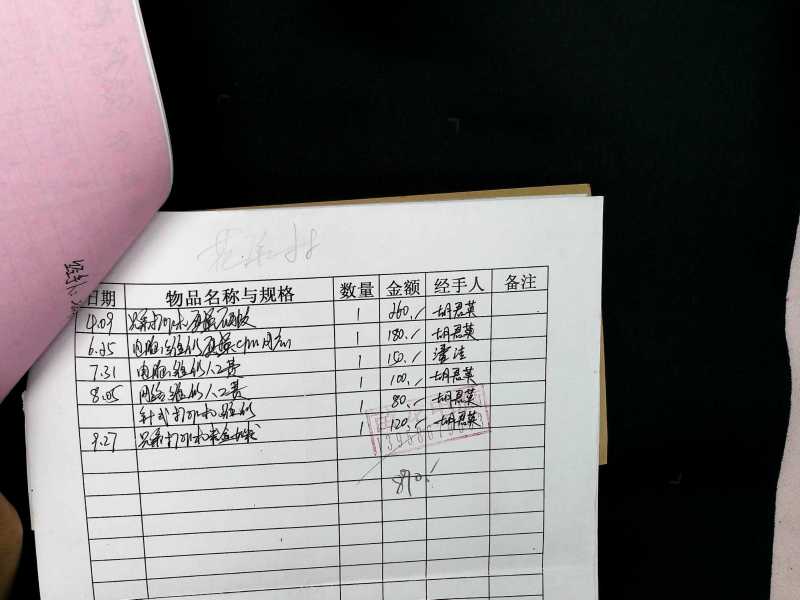 日期 物品名称与规格 数量 金额 经手人 备注
4.09 兄弟打印机更换 1 260.- 胡君英
6.25 电脑维修更换cpu风扇 1 180.- 胡君英
7.31 电脑维修人工费 1 150.-
8.05 网络维修人工费 1 100.- 胡君英
针式打印机维修 1 80.- 胡君英
9.27 兄弟打印机 1 120.- 胡君英
890.-